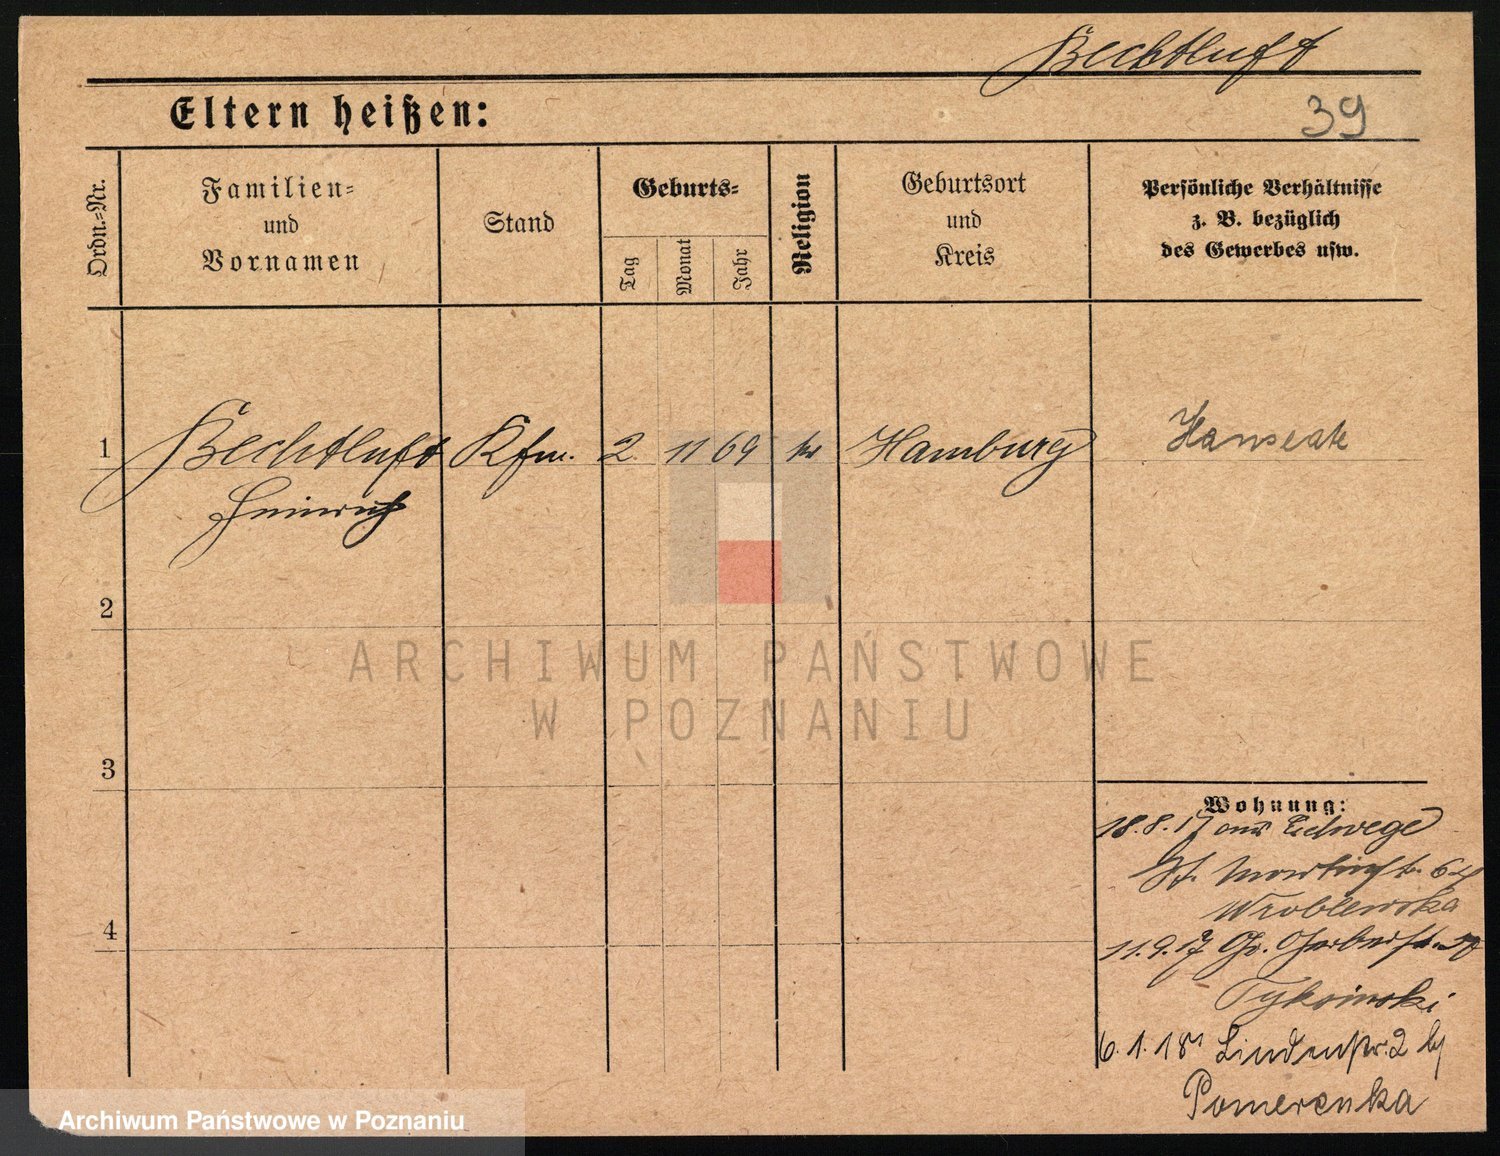 Bechtluft
Eltern heißen:
39
Ordn.=Nr.
Familien=
und
Vornamen
Stand
Geburts=
Tag
Monat
Jahr
Religion
Geburtsort
und
Kreis
Persönliche Verhältnisse
z. B. bezüglich
des Gewerbes usw.
1 Bechtluft Kfm. 2. 11 69 Hamburg Hanseate
Heinrich
2
ARCHIWUM PAŃSTWOWE
W POZNANIU
3
Wohnung:
18.8.17 aus Eschwege
St. Martinstr. 64
Wroblewska
4
11.9.17 Gr. Gerberstr.
6.1.18 Lindenstr. 2 bj
Pomerenka
Archiwum Państwowe w Poznaniu